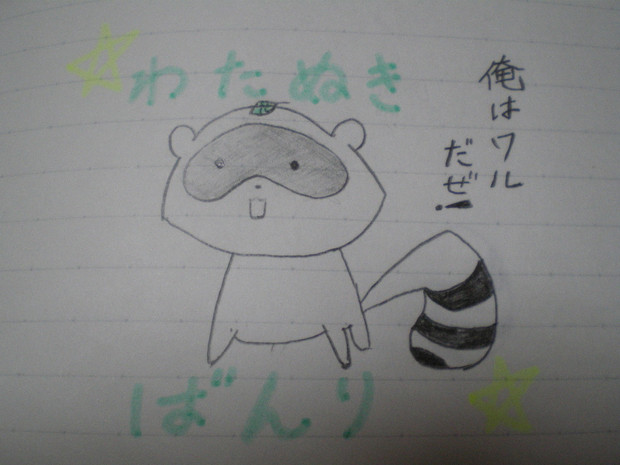 わたぬき
俺はワル
だぜ!
ばんり